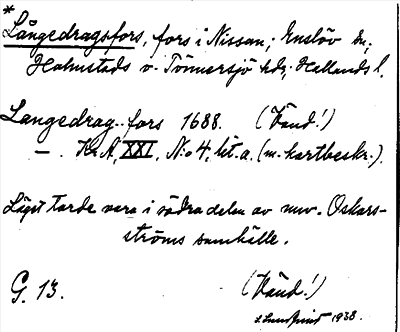 *
Långedragsfors, fors i Nissan; Enslöv sn;
Halmstads o. Tönnersjö hdr; Hallands l.
Langedrag- fors 1688. (Känd!)
— . Kr. A, XXI, N:o 4, lit. a. (m. kartbeskr.).
Läget torde vara i södra delen av nuv. Oskars-
ströms samhälle.
G. 13. (Känd!)
1938.